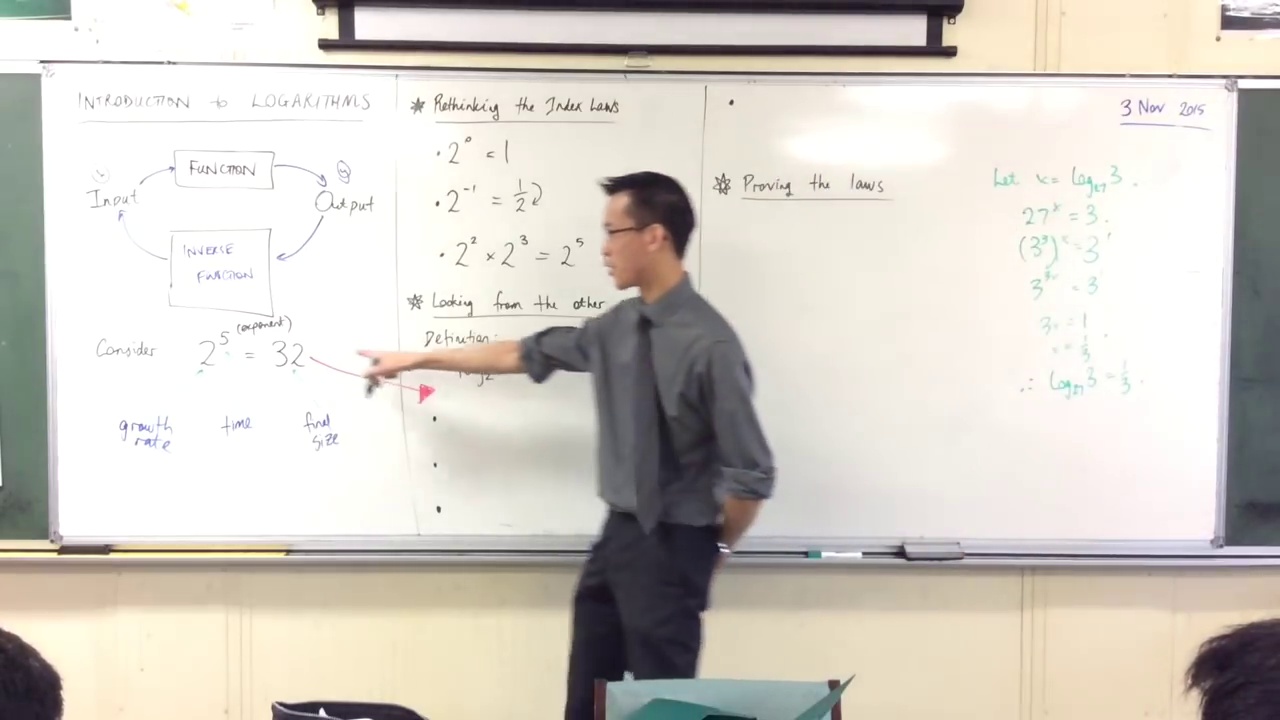 INTRODUCTION to LOGARITHMS
FUNCTION
Input
Output
INVERSE
FUNCTION
(exponent)
Consider 2^5 = 32
growth rate
time
final size
Rethinking the Index Laws
• 2^0 = 1
• 2^-1 = 1/2
• 2^2 × 2^3 = 2^5
Looking from the other
Definition:
•
Proving the laws
3 Nov 2015
Let x = log27 3.
27^x = 3.
(3^3)^x = 3^1
3^3x = 3
3x = 1
x = 1/3
∴ log27 3 = 1/3.